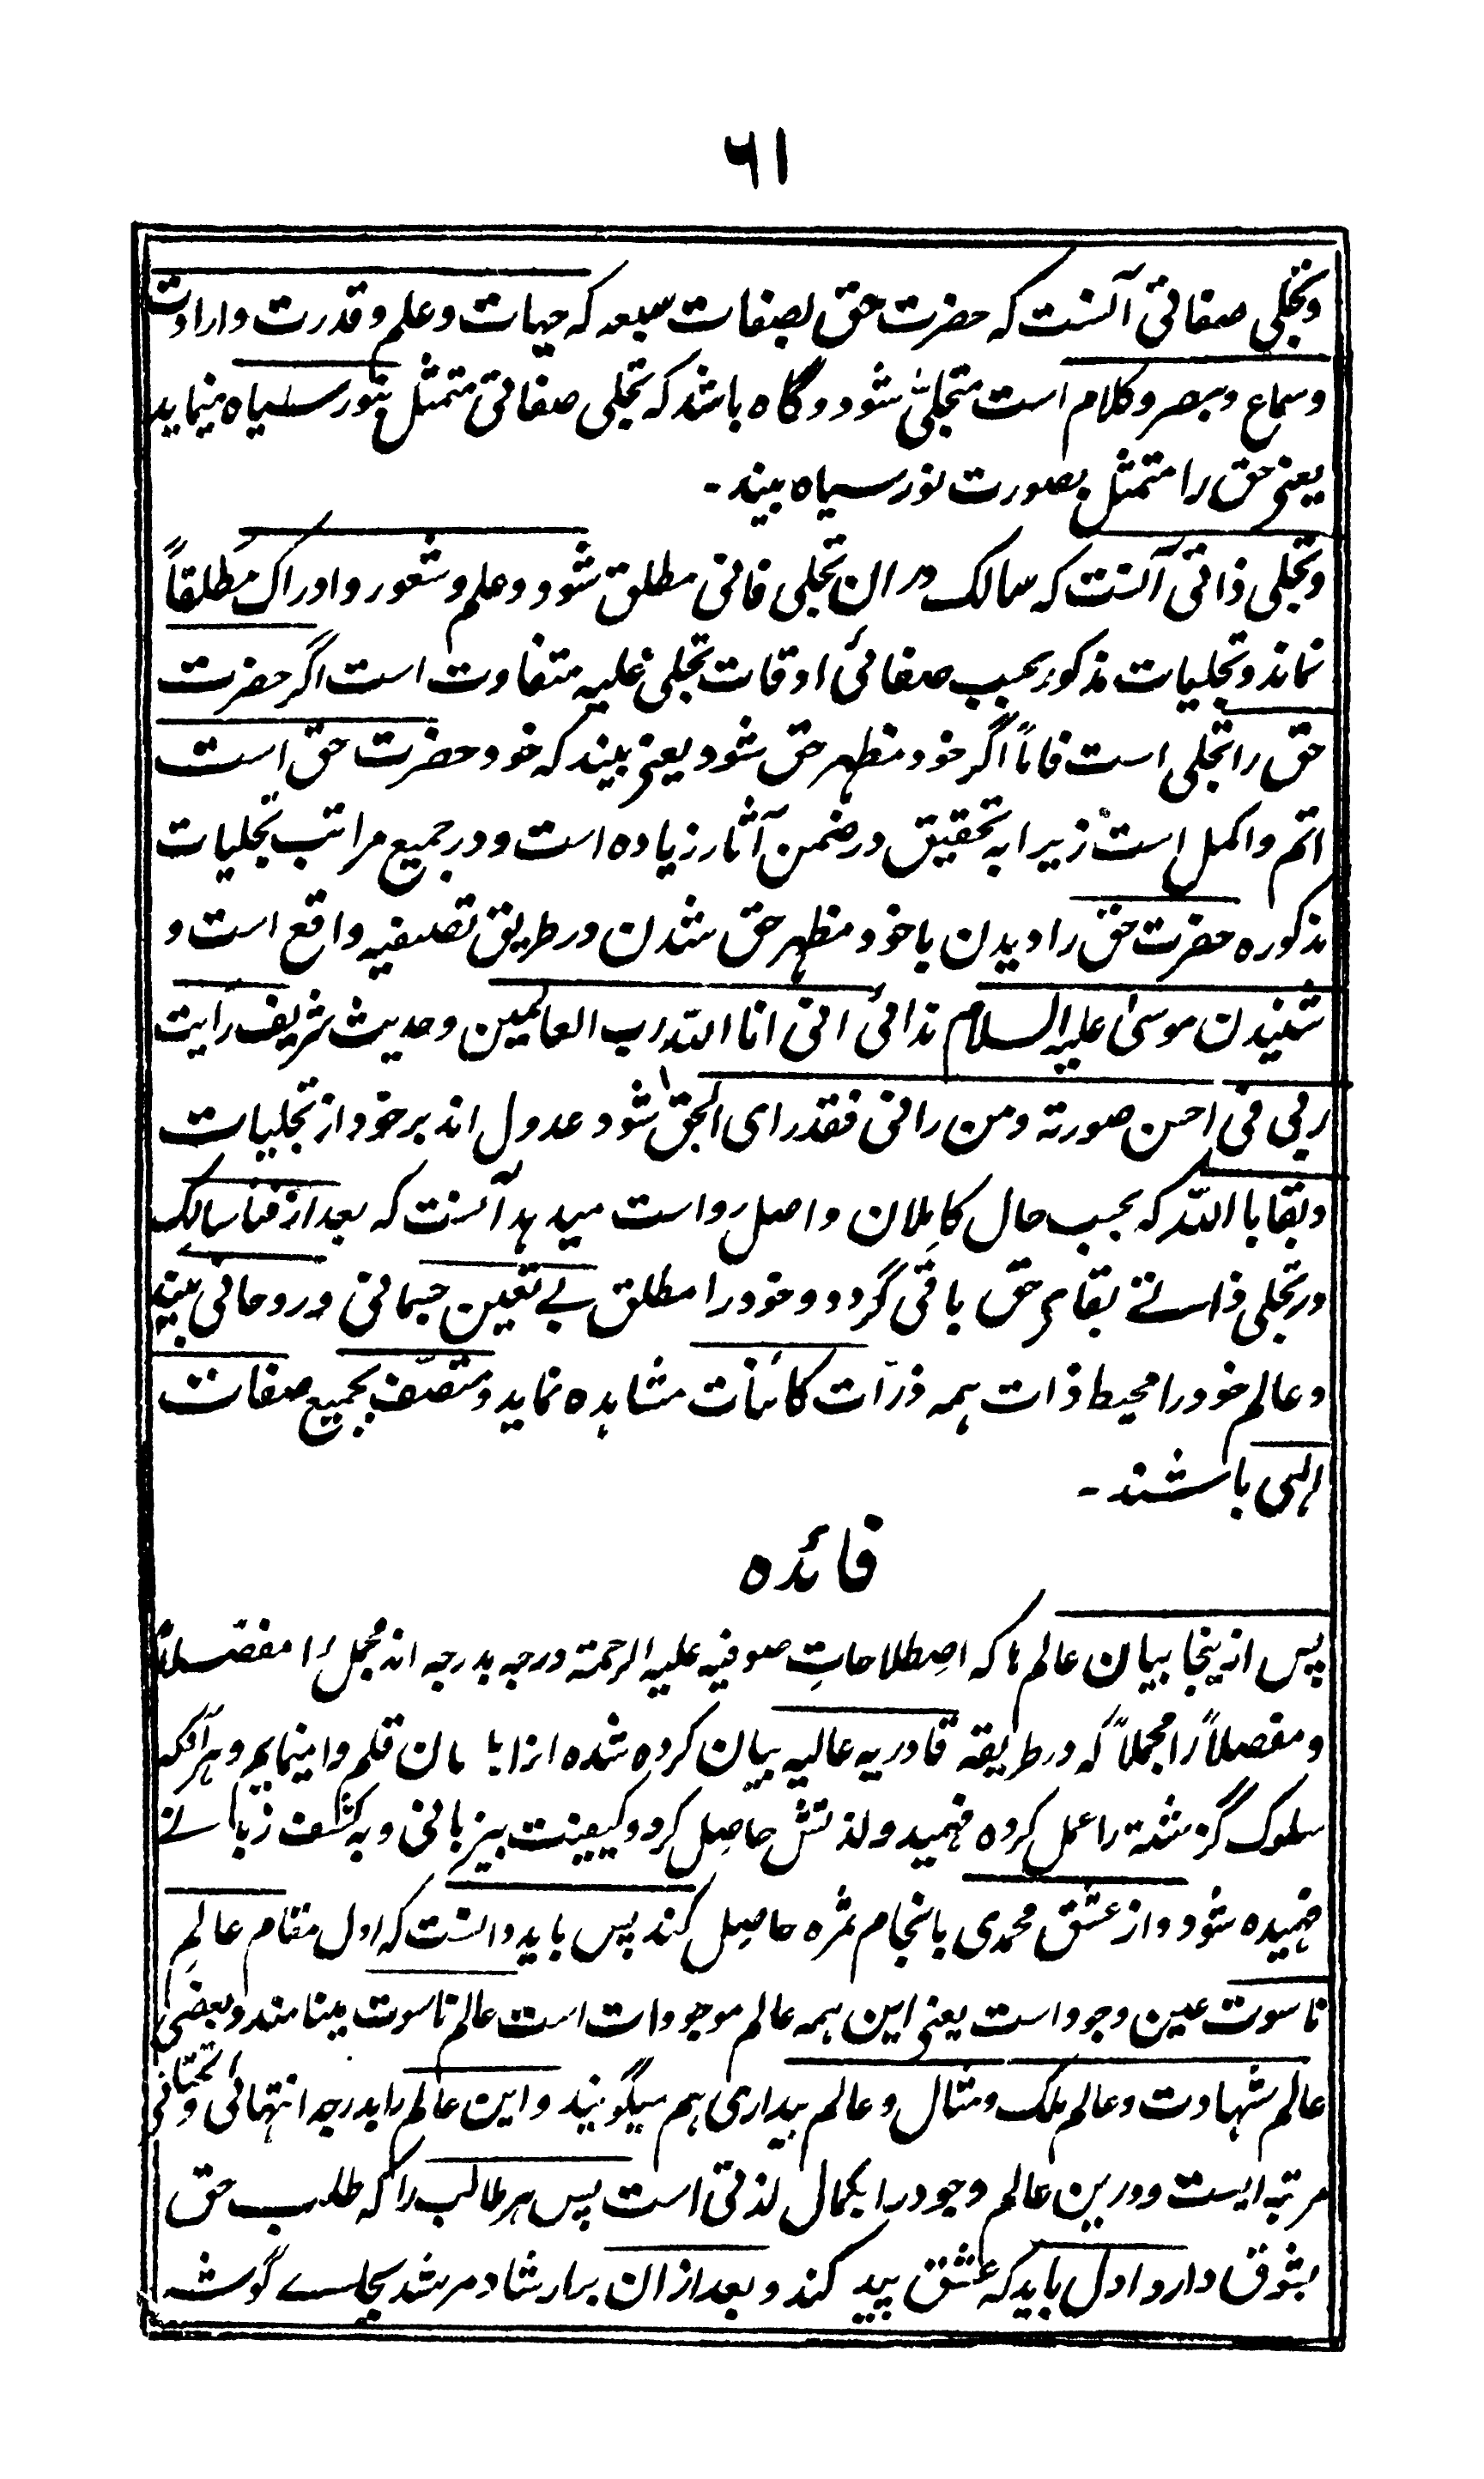 ۶۱
وتجلی صفاتی آنست که حضرت حق بصفات سبعه که حیات وعلم وقدرت وارادت
وسماع وبصر وکلام است متجلیٰ شود وگاه باشد که تجلی صفاتی متمثل بنور سیاه مینماید
یعنی حق را متمثل بصورت نور سیاه بیند۔
وتجلی ذاتی آنست که سالک در ان تجلی فانی مطلق شود وعلم وشعور وادراک مطلقاً
نماند وتجلیات مذکور بحسب صفائی اوقات تجلی علیه متفاوت است اگر حضرت
حق را تجلی است فاماً اگر خود مظهر حق شود یعنی بیند که خود حضرت حق است
اتم واکمل است زیرا به تحقیق درضمن آثار زیاده است ودر جمیع مراتب تجلیات
مذکوره حضرت حق را دیدن یا خود مظهر حق شدن در طریق تصفیه واقع است و
شنیدن موسیٰ علیه السلام ندائی انی انا الله رب العالمین وحدیث شریف رایت
ربی فی احسن صورته ومن رانی فقد رای الحق شود عدول اند برخود از تجلیات
وبقا با الله که بحسب حال کاملان واصل رواست میدهد آنست که بعد از فنا سالک
در تجلی ذاتے بقاء حق باقی گردد وخود را مطلق بے تعین جسمانی وروحانی بیند
وعالم خود را محیط ذات همه ذرّات کائنات مشاهده نماید ومتصّف بجمیع صفات
الهی باشند۔
فائده
پس ازینجا بیان عالم ها که اصطلاحاتِ صوفیه علیه الرحمة درجه بدرجه اند مجمل را مفصّلاً
ومفصلاً را مجملاً که در طریقه قادریه عالیه بیان کرده شده انرا با قلم وامینمایم وهر آنکه
سلوک گزشته را عمل کرده فهمید ولذتش حاصل کرد وکیفیت بیزبانی وبه کشف زبانے
فهمیده شود واز عشق محمدی بانجام ثمره حاصل کند پس باید دانست که اول مقام عالمِ
ناسوت عین وجود است یعنی این همه عالم موجودات است عالم ناسوت مینامند وبعضی
عالم شهادت وعالم ملک ومثال وعالم بیداری هم میگویند واین عالم را بدرجه انتهائی وتحتانی
مرتبه ایست ودرین عالم وجود را بکمال لذتی است پس هر طالب را که طلب حق
بشوق دارد اول باید که عشق پید کند وبعد ازان بارشاد مرشد بجاے گوشه